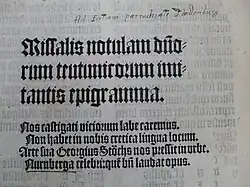 Missalis notulam dño-
rum teutunicorum imi-
tantis epigramma.
Nos castigati viciorum labe caremus.
Non habet in nobis cretica lingua locum.
Arte sua Georgius Stöchs nos pressit in orbe.
Nurnberga celebri: que bñ laudat opus.